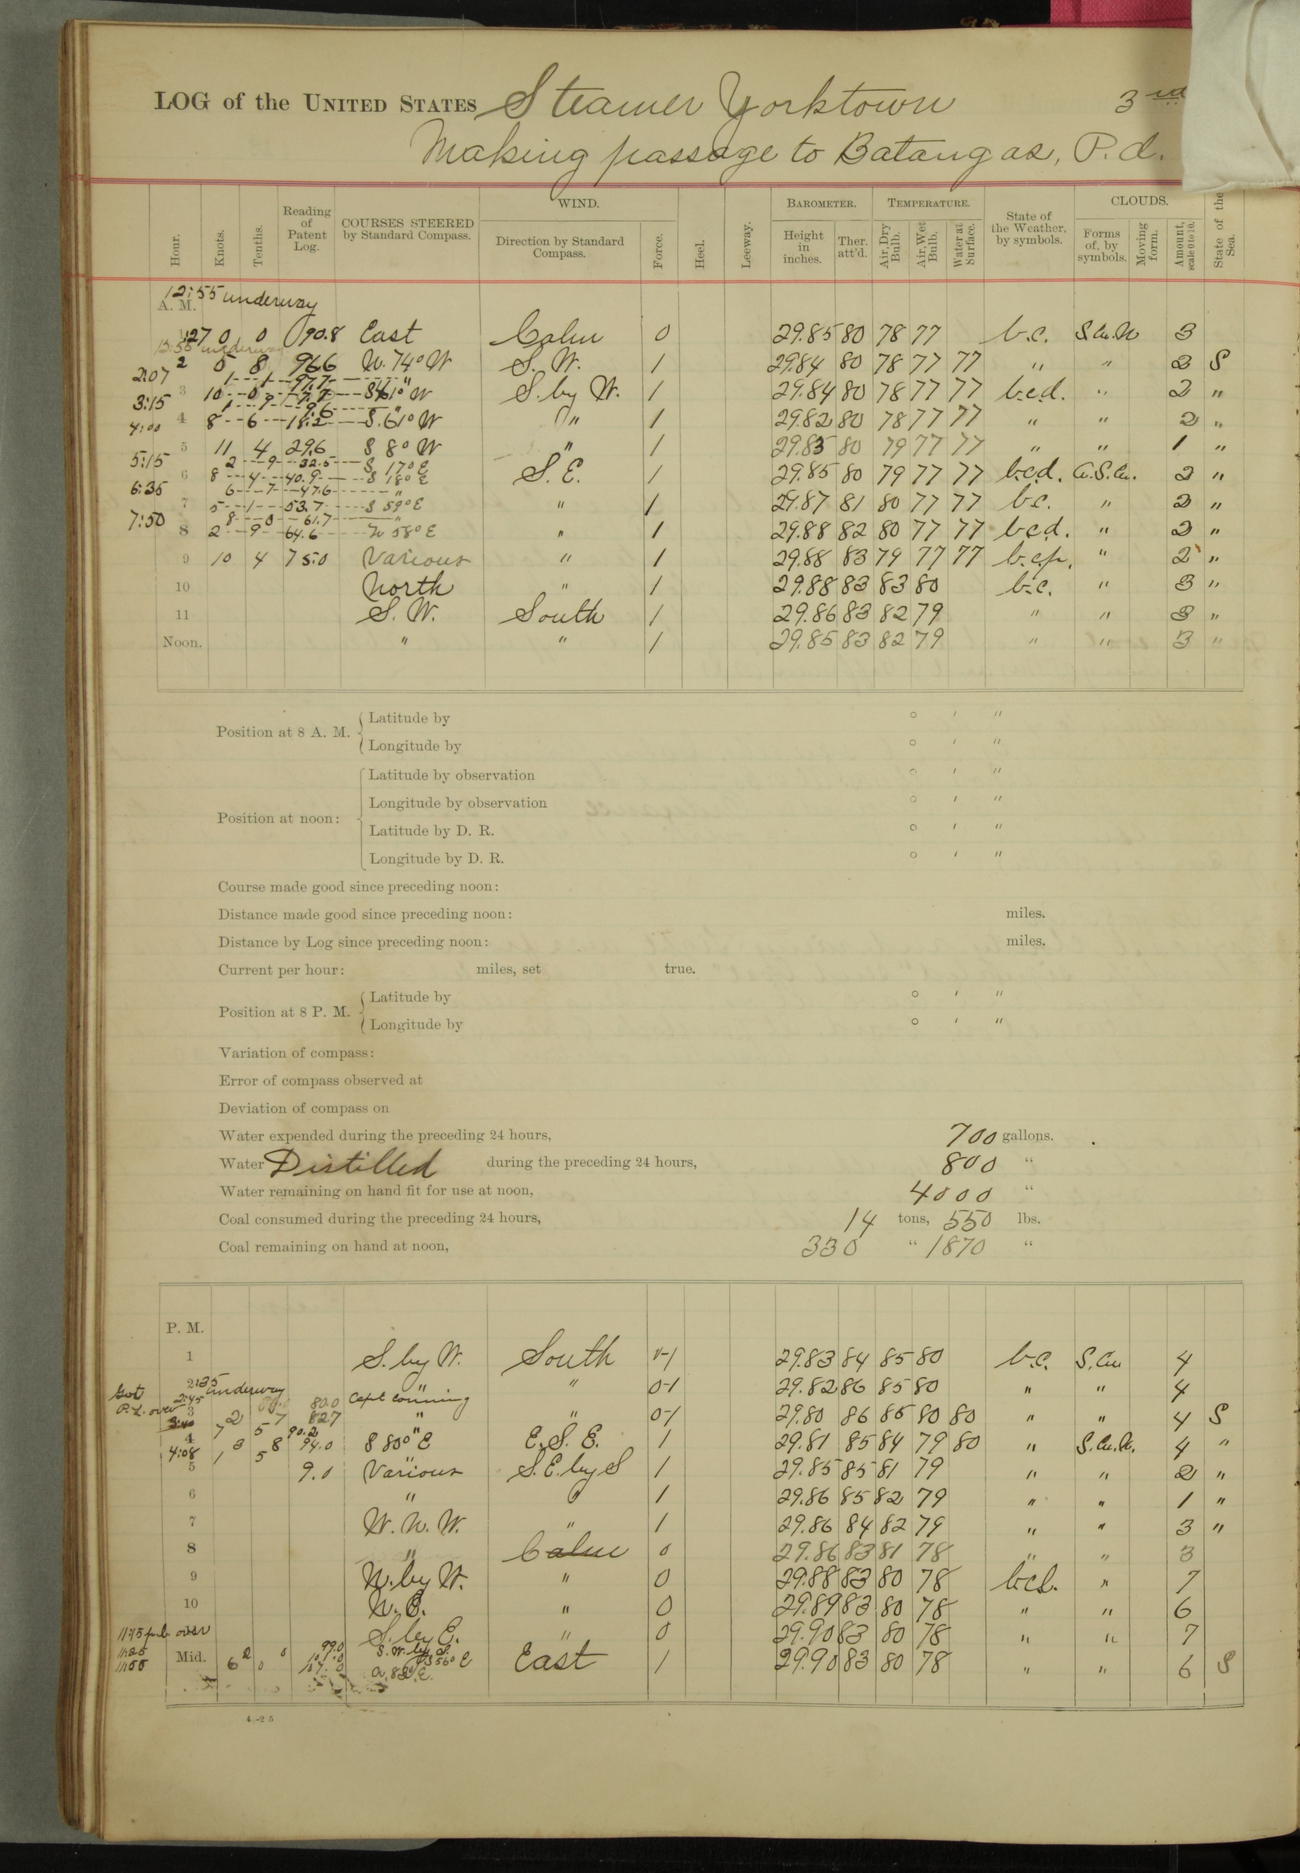 LOG of the UNITED STATES Steamer Yorktown 3rd
Making passage to Batangas, P.I.
Hour. Knots. Tenths. Reading of Patent Log. COURSES STEERED by Standard Compass. WIND. Direction by Standard Compass. Force. Heel. Leeway. BAROMETER. Height in inches. Ther. att'd. TEMPERATURE. Air, Dry Bulb. Air, Wet Bulb. Water at Surface. State of the Weather, by symbols. CLOUDS. Forms of, by symbols. Moving form. Amount, scale 0 to 10. State of the Sea.
12:55 underway
A. M.
0 0 90.8 East Calm 0 29.85 80 78 77 b.c. S.Cu.N 3
2 5 8 96.6 N. 74° W S.W. 1 29.84 80 78 77 77 " " 2 S
2:07 1 1 97.7 "
3 10 0 7.7 S 61° W S. by W. 1 29.84 80 78 77 77 b.c.d. " 2 "
3:15 1 9 9.6 "
4:00 4 8 6 18.2 S. 61° W " 1 29.82 80 78 77 77 " " 2 "
5 11 4 29.6 S 8° W " 1 29.85 80 79 77 77 " " 1 "
5:15 2 9 32.5 S 17° E
6 8 4 40.9 S 18° E S.E. 1 29.85 80 79 77 77 b.c.d. Cu.S.Cu. 2 "
6:35 6 7 47.6 "
7 5 1 53.7 S 59° E " 1 29.87 81 80 77 77 b.c. " 2 "
7:50 8 0 61.7 "
8 2 9 64.6 N 58° E " 1 29.88 82 80 77 77 b.c.d. " 2 "
9 10 4 75.0 Various " 1 29.88 83 79 77 77 b.c.p. " 2 "
10 North " 1 29.88 83 83 80 b.c. " 3 "
11 S.W. South 1 29.86 83 82 79 " " 3 "
Noon. " " 1 29.85 83 82 79 " " 3 "
Position at 8 A. M. Latitude by ° ′ ″
Longitude by ° ′ ″
Position at noon: Latitude by observation ° ′ ″
Longitude by observation ° ′ ″
Latitude by D. R. ° ′ ″
Longitude by D. R. ° ′ ″
Course made good since preceding noon:
Distance made good since preceding noon: miles.
Distance by Log since preceding noon: miles.
Current per hour: miles, set true.
Position at 8 P. M. Latitude by ° ′ ″
Longitude by ° ′ ″
Variation of compass:
Error of compass observed at
Deviation of compass on
Water expended during the preceding 24 hours, 700 gallons.
Water Distilled during the preceding 24 hours, 800 "
Water remaining on hand fit for use at noon, 4000 "
Coal consumed during the preceding 24 hours, 14 tons, 550 lbs.
Coal remaining on hand at noon, 330 " 1870 "
P. M.
1 S. by W. South 0-1 29.83 84 85 80 b.c. S.Cu 4
2 2:35 underway " " 0-1 29.82 86 85 80 " " 4
Got P.L. over 2:45 80.0 Capt conning
3 2 7 82.7 " " 0-1 29.80 86 85 80 80 " " 4 S
3:40 7 5 90.2 "
4 3 8 94.0 S 80° E E.S.E. 1 29.81 85 84 79 80 " S.Cu.N. 4 "
4:08 1 5
5 9.0 Various S.E. by S 1 29.85 85 81 79 " " 2 "
6 " " 1 29.86 85 82 79 " " 1 "
7 W.N.W. " 1 29.86 84 82 79 " " 3 "
8 " Calm 0 29.86 83 81 78 " " 3
9 N. by W. " 0 29.88 83 80 78 b.c.l. " 7
10 N.E. " 0 29.89 83 80 78 " " 6
S. by E. " 0 29.90 83 80 78 " " 7
Mid. 6 0 East 1 29.90 83 80 78 " " 6 S
4-25